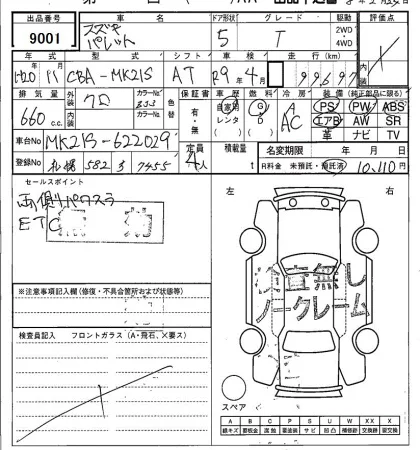 出品番号 車名 ドア形状 グレード 駆動 評価点
9001 スズキ パレット 5 T 2WD・4WD
年式 型式 シフト 車検 走行(km)
H20 11 CBA-MK21S AT R9年4月
排気量 外装色 カラーNo 色替 保証書 車歴 燃料 冷房 装備(純正部品に限る)
660 c.c. 内装 カラーNo 有・無 自家用 レンタ G D AC PS PW ABS
エアB AW SR
革 ナビ TV
車台No MK21S-622029
定員 4人 積載量 t
名変期限 年 月 日
登録No 札幌 582 7455
R料金 未預託・預託済 10,110円
セールスポイント
両側パワスラ
ETC
左 右
検査無し
ノークレーム
※注意事項記入欄(修復・不具合箇所および状態等)
検査員記入欄 フロントガラス(A・飛石、×要ス)
スペア
A B C P S U W X XX
線キズ 要板金 腐蝕 要塗装 サビ 凹凸 補修跡 交換 要交換